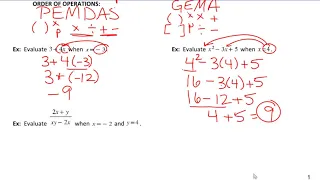 ORDER OF OPERATIONS:
PEMDAS GEMA
( ) x x ÷ + - ( ) x x +
P [ ] P ÷ -
Ex: Evaluate 3 + 4x when x = -3 Ex: Evaluate x² - 3x + 5 when x = 4.
3 + 4(-3) 4² - 3(4) + 5
3 + (-12) 16 - 3(4) + 5
-9 16 - 12 + 5
4 + 5 = 9
Ex: Evaluate (2x + y)/(xy - 2x) when x = -2 and y = 4.
1